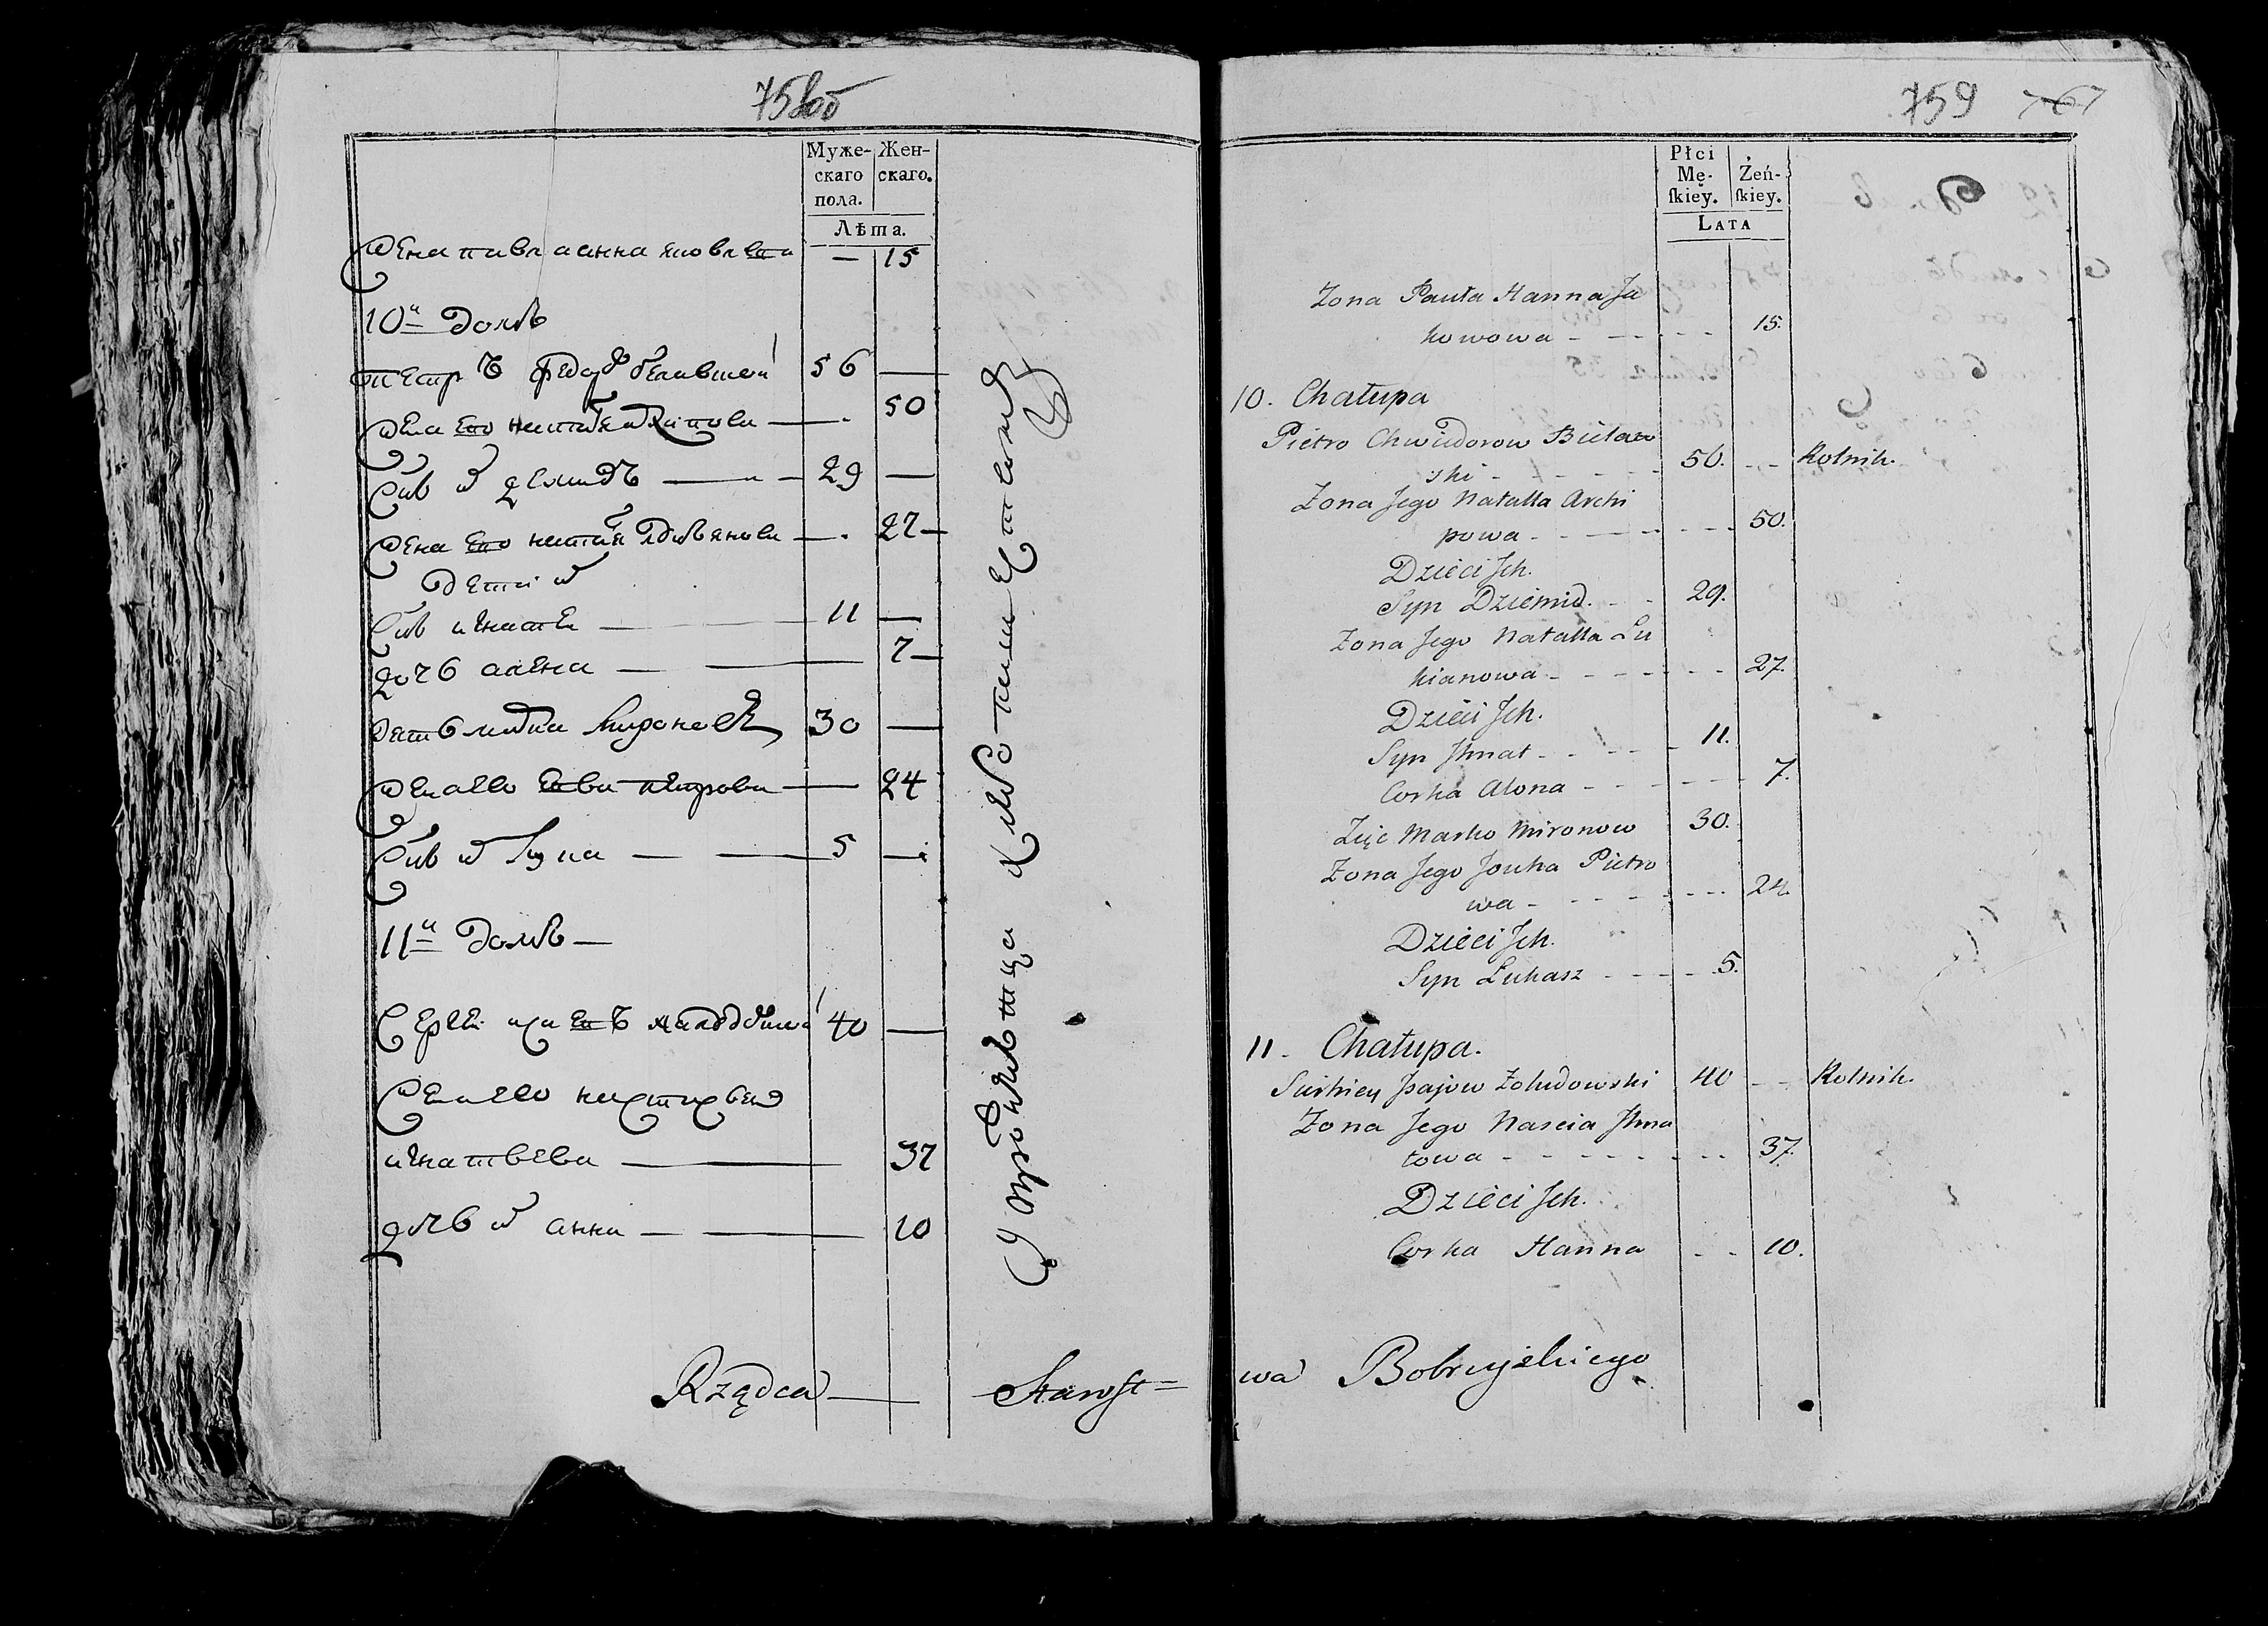 758об
Муже-
скаго
пола.
Жен-
скаго.
Лѣта.
жена павла анна яковлева — 15
10й домъ
петръ федор белавски 56 —
жена ево наталя архипова — 50
Сынъ демидъ — 29 —
жена ево наталя лукьянова — 27
дети
Сынъ игнатеи — 11 —
дочь алена — 7
зять марка миронов 30 —
жена ево петрова — 24
Сынъ лука — 5 —
11й домъ —
Сергеи 40 —
Жена ево настасья
игнатьева — 37
дочь анна — 10
Rządca — Starost=
759 767
Płci
Mę-
ſkiey.
Żeń-
ſkiey.
LATA
Zona Pauła Hanna Ja
kowowa - - - - - 15.
10. Chałupa
Pietro Chwiedorow Bielaw
ski - - - - - 56. - - Rolnik.
Zona Jego Natalla Archi
powa - - - - - 50.
Dzieci Jch.
Syn Dziemid. - - 29.
Zona Jego Natalla Lu
kianowa - - - - - 27.
Dzieci Jch.
Syn Jhnat - - - - 11.
Corka Alona - - - - 7.
Zięc Marko Mironow 30.
Zona Jego Jouka Pietro
wa - - - - - 24.
Dzieci Jch.
Syn Łukasz - - - - 5.
11. Chałupa.
Sierhiey Jsajow Zoludowski 40 - - Rolnik.
Zona Jego Nascia Jhna
towa - - - - - 37.
Dzieci Jch.
Corka Hanna - - 10.
wa Bobruyskiego